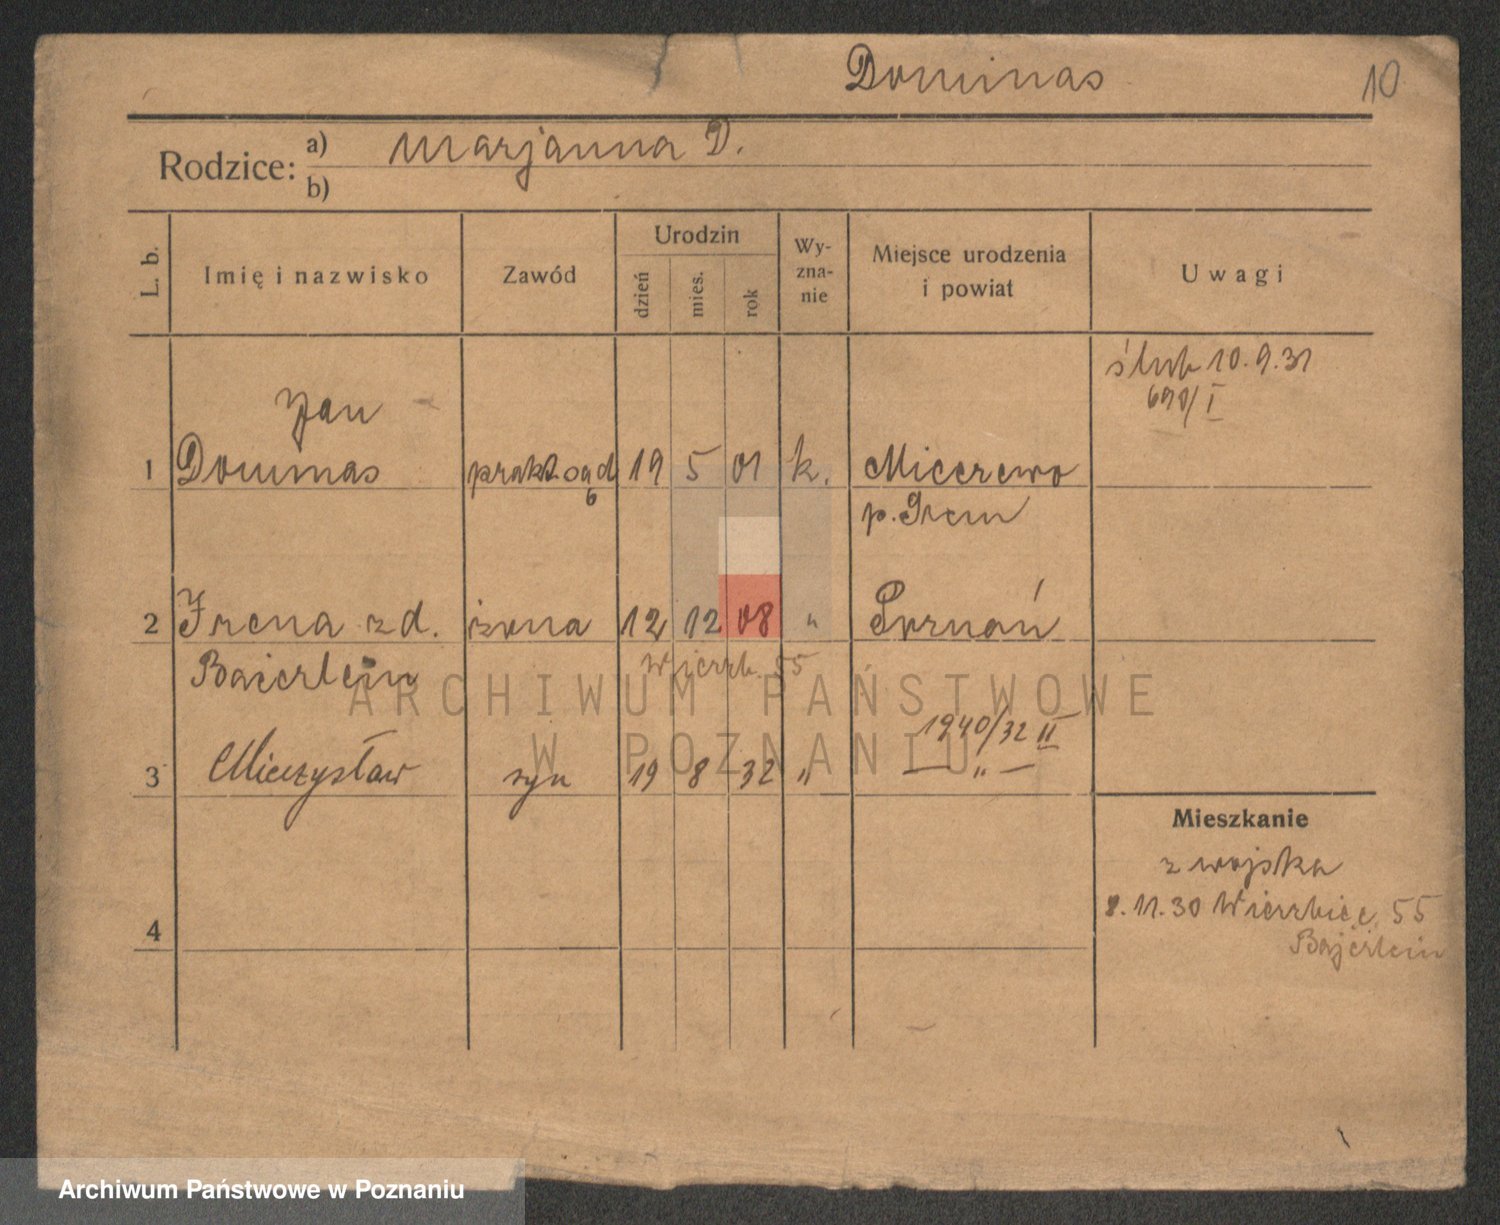 Dominas 10
Rodzice: a) Marjanna D.
b)
L. b. Imię i nazwisko Zawód Urodzin dzień mies. rok Wy-zna-nie Miejsce urodzenia i powiat Uwagi
ślub 10.9.31
690/I
Jan
1 Dominas prakt. sąd 19 5 01 k. Miecrewo
p. Śrem
2 Irena z d. żona 12 12 08 " Poznań
Bajerlein Wierzb. 55
1940/32 II
3 Mieczysław syn 19 8 32 " — " —
Mieszkanie
z wojska
8.11.30 Wierzbięc. 55
4
Bajerlein
ARCHIWUM PAŃSTWOWE
W POZNANIU
Archiwum Państwowe w Poznaniu